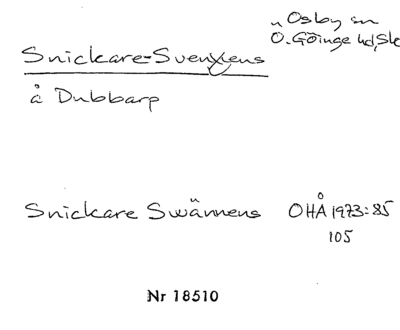 " Osby sn
Ö. Göinge hd, Sk
Snickare-Svennens
å Dubbarp
Snickare Swännens OHÅ 1973:85
105
Nr 18510